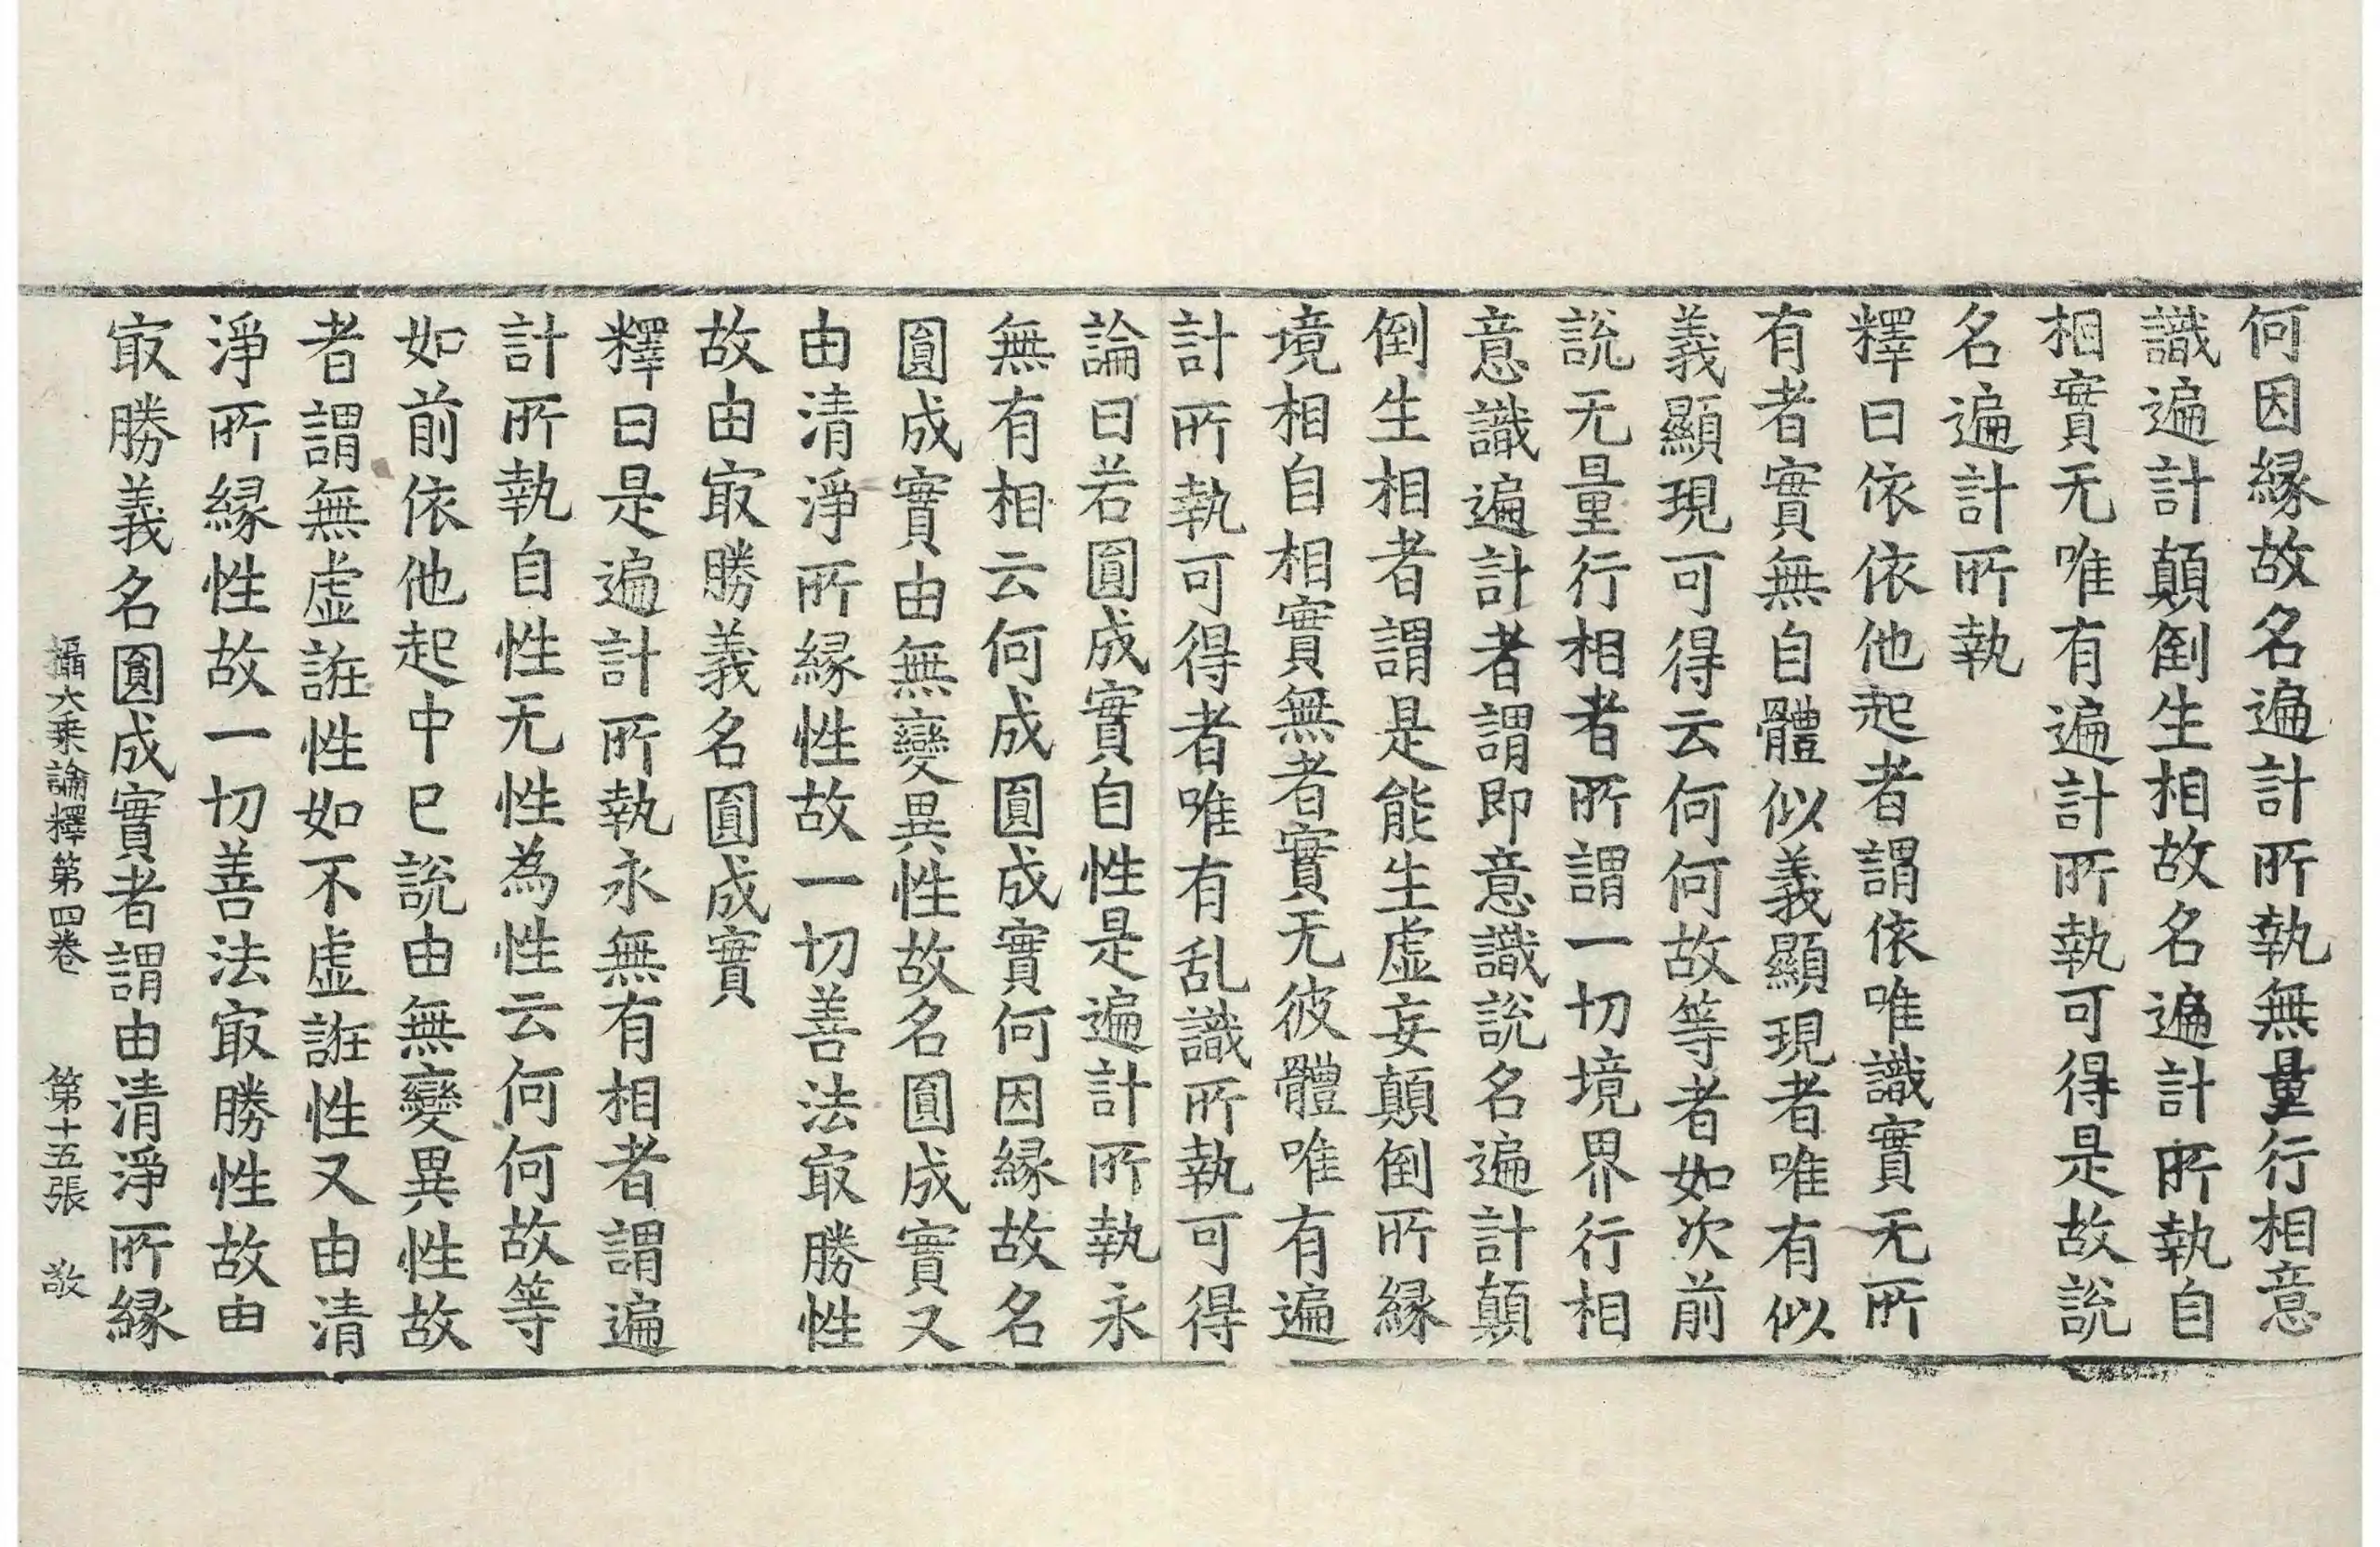 何因緣故名遍計所執無量行相意
識遍計顛倒生相故名遍計所執自
相實无唯有遍計所執可得是故說
名遍計所執
釋曰依依他起者謂依唯識實无所
有者實無自體似義顯現者唯有似
義顯現可得云何何故等者如次前
說无量行相者所謂一切境界行相
意識遍計者謂即意識說名遍計顛
倒生相者謂是能生虛妄顛倒所緣
境相自相實無者實无彼體唯有遍
計所執可得者唯有乱識所執可得
論曰若圓成實自性是遍計所執永
無有相云何成圓成實何因緣故名
圓成實由無變異性故名圓成實又
由清淨所緣性故一切善法㝡勝性
故由㝡勝義名圓成實
釋曰是遍計所執永無有相者謂遍
計所執自性无性為性云何何故等
如前依他起中已說由無變異性故
者謂無虛誑性如不虛誑性又由清
淨所緣性故一切善法㝡勝性故由
㝡勝義名圓成實者謂由清淨所緣
攝大乘論釋第四卷　第十五張　敬